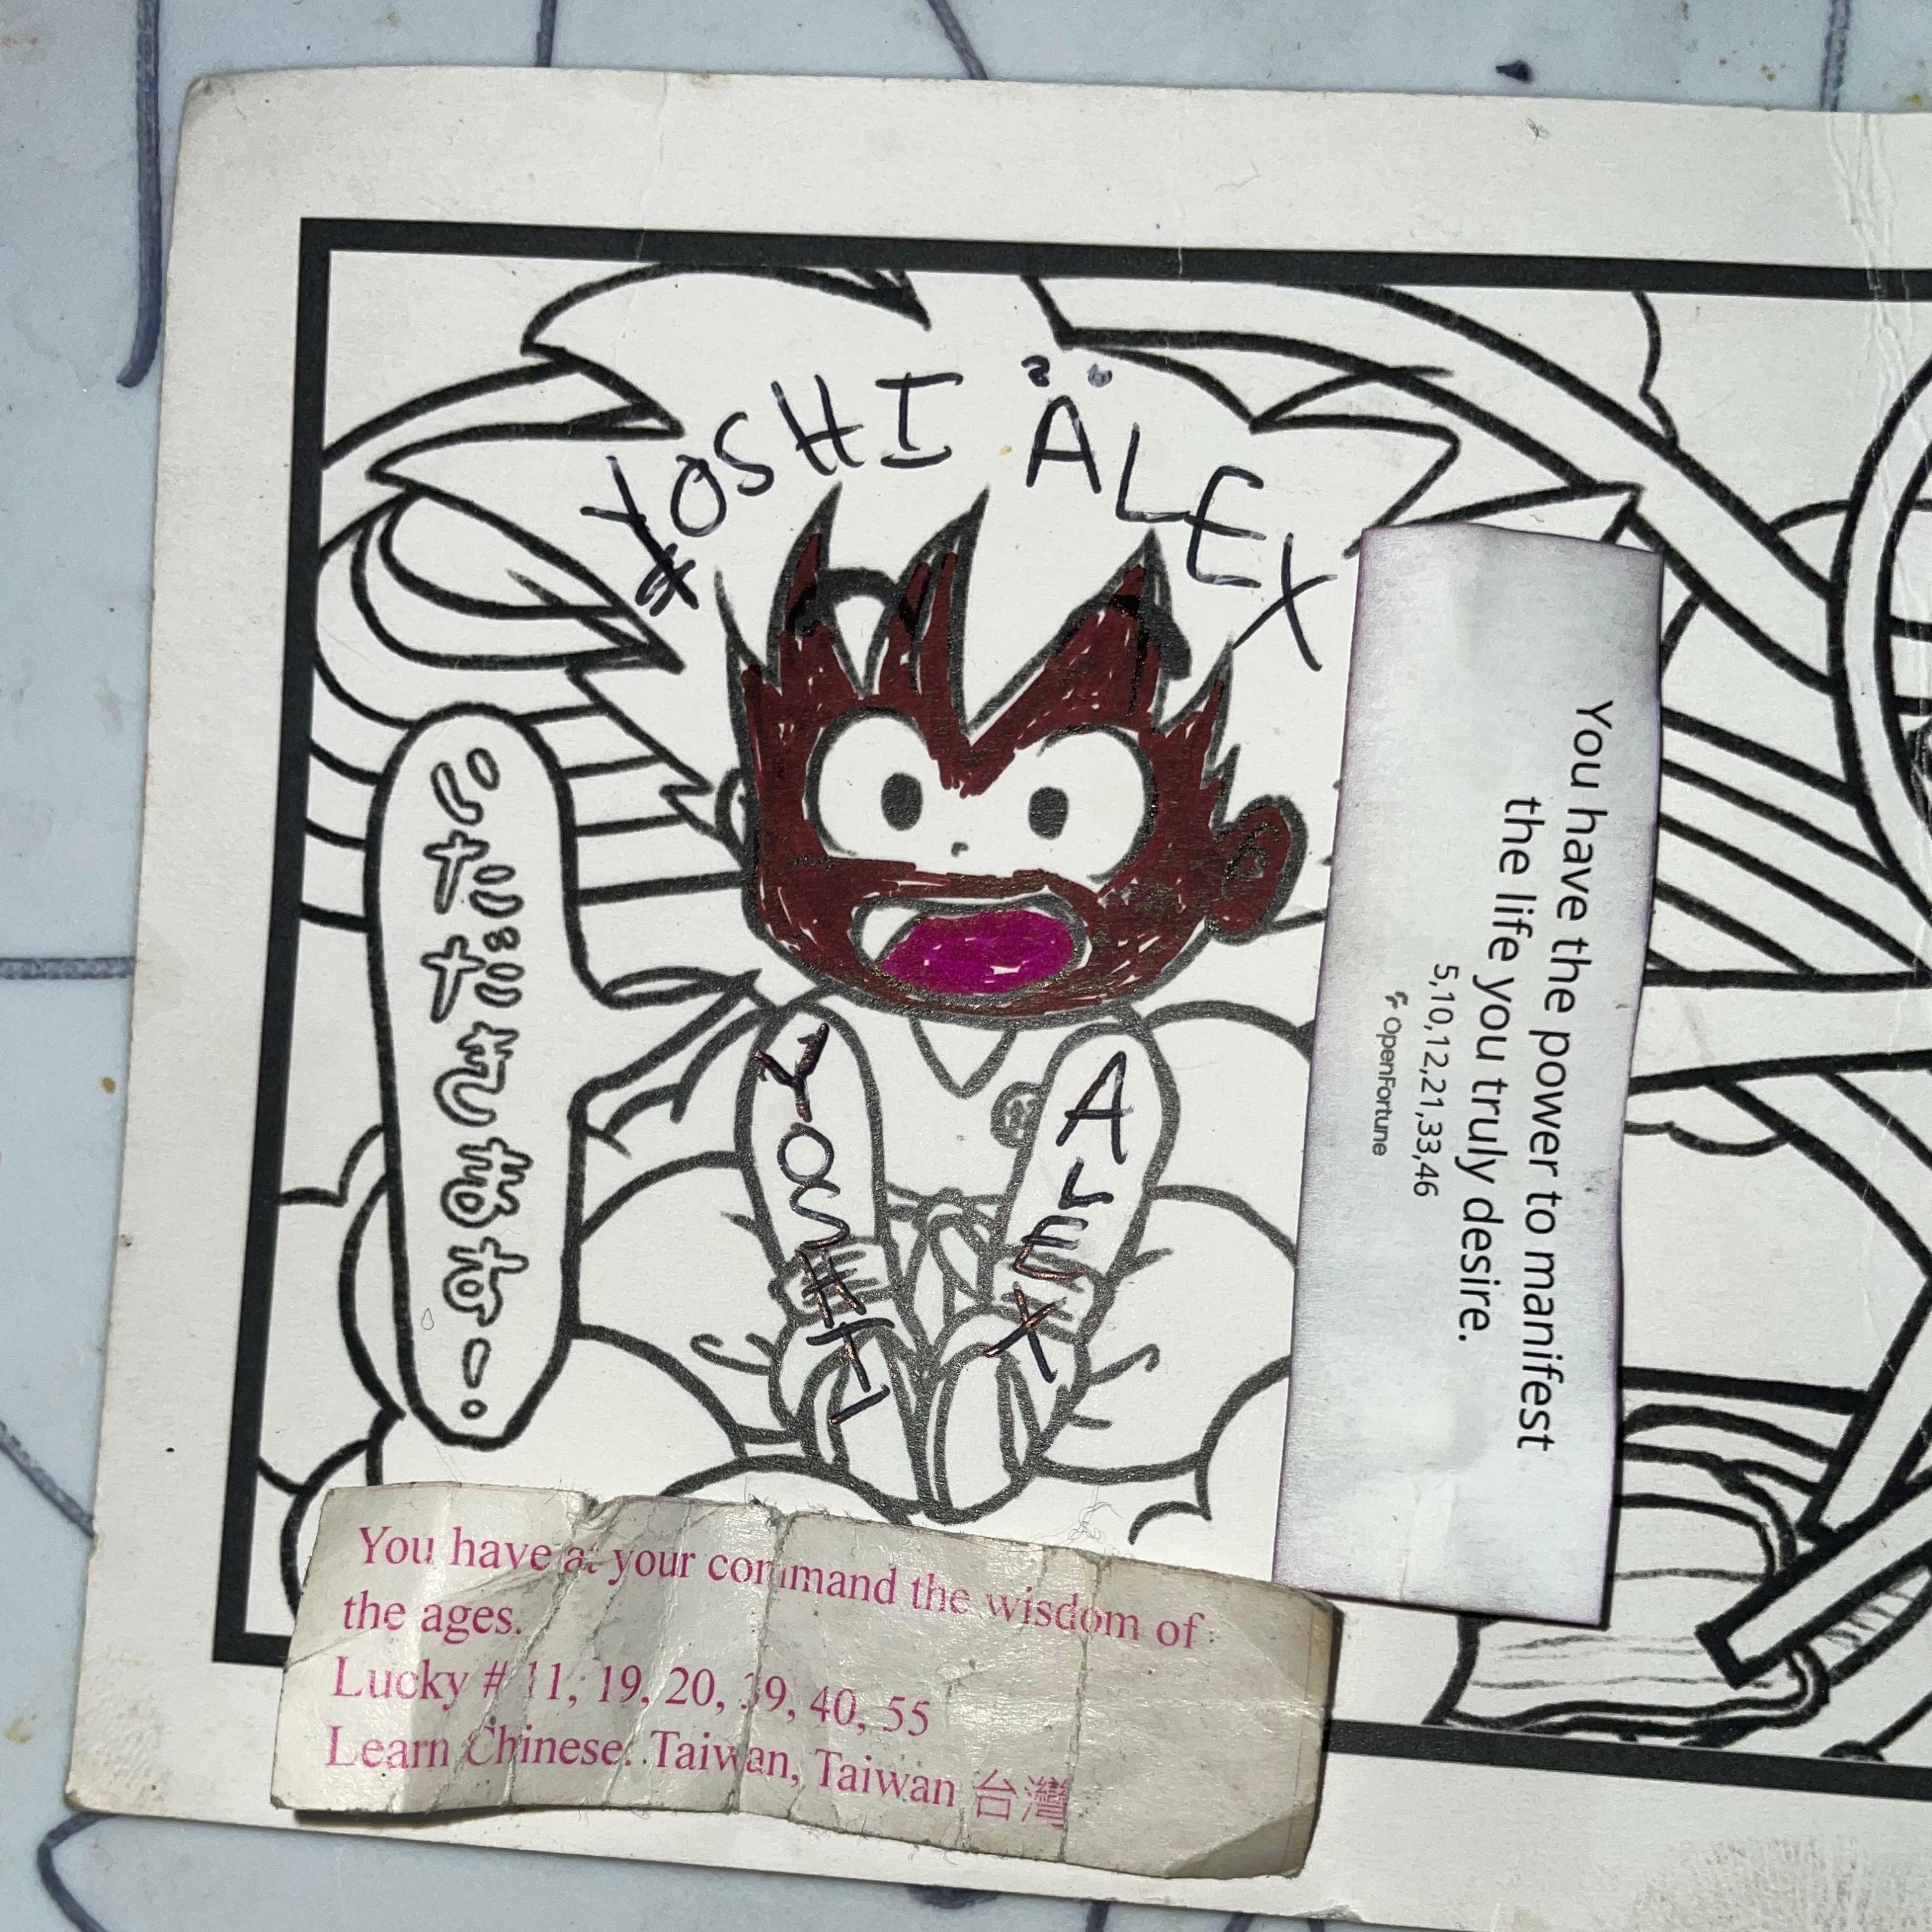 YOSHI ALEX
いただきますー。
YOSHI
ALEX
You have the power to manifest
the life you truly desire.
5,10,12,21,33,46
OpenFortune
You have at your command the wisdom of
the ages.
Lucky # 11, 19, 20, 39, 40, 55
Learn Chinese. Taiwan, Taiwan 台灣